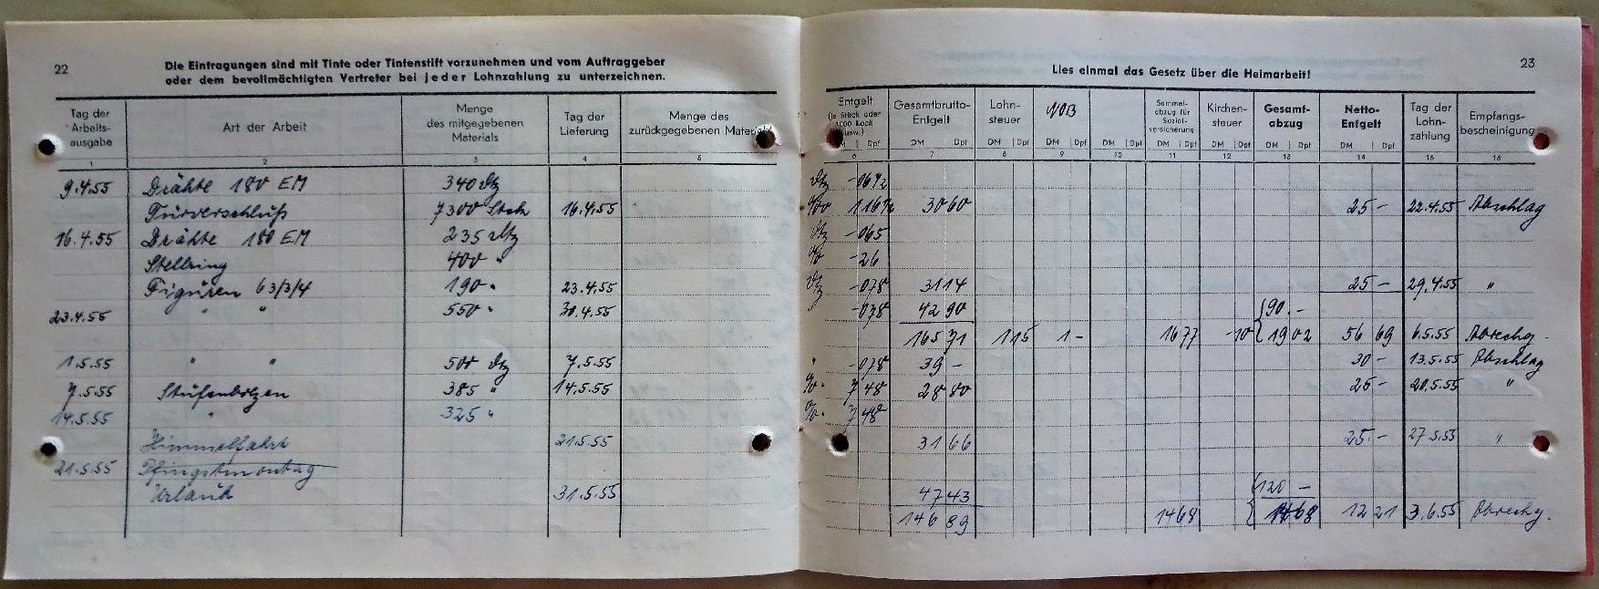 22
Die Eintragungen sind mit Tinte oder Tintenstift vorzunehmen und vom Auftraggeber
oder dem bevollmächtigten Vertreter bei jeder Lohnzahlung zu unterzeichnen.
Tag der Arbeits- ausgabe
Art der Arbeit
Menge des mitgegebenen Materials
Tag der Lieferung
Menge des zurückgegebenen
1 2 3 4 5
9.4.55 Drähte 180 EM 340 dtz
Türverschluß 7300 Stck 16.4.55
16.4.55 Drähte 180 EM 235 dtz
Stellring 400 "
Figuren 63/3/4 190 " 23.4.55
23.4.55 " " 550 " 30.4.55
1.5.55 " " 500 dtz 7.5.55
7.5.55 Stufenbolzen 385 " 14.5.55
14.5.55 " 325 "
Himmelfahrt 21.5.55
21.5.55 Pfingstmontag
Urlaub 31.5.55
23
Lies einmal das Gesetz über die Heimarbeit!
Entgelt (je Stück oder
DM Dpf
Gesamtbrutto- Entgelt DM Dpf
Lohn- steuer DM Dpf
NOB DM Dpf
DM Dpf
Sammel- abzug für Sozial- versicherung DM Dpf
Kirchen- steuer DM Dpf
Gesamt- abzug DM Dpf
Netto- Entgelt DM Dpf
Tag der Lohn- zahlung
Empfangs- bescheinigung
6 7 8 9 10 11 12 13 14 15 16
dtz
30 60 25 - 22.4.55 Abschlag
dtz -065
-26
dtz -078 31 14 25 - 29.4.55 "
-078 42 90 90.-
165 71 1 15 1 - 16 77 -10 19 02 56 69 6.5.55 Abrechg.
" -078 39 - 30 - 13.5.55 Abschlag
7 48 28 80 25 - 20.5.55 "
7 48
31 66 25.- 27.5.55 "
47 43 120 -
146 89 14 68 14 68 12 21 3.6.55 Abrechg.